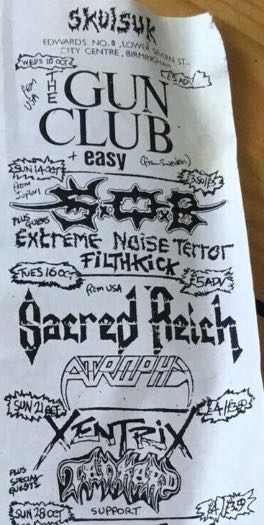 SKUISUK
EDWARDS NO.8, LOWER SEVERN ST.,
CITY CENTRE, BIRMINGHAM
WEDS 10 OCT
£5 ADV
from USA
THE GUN
CLUB
+ easy (from Sweden)
SUN 14 OCT
from Japan
S.O.B
PLUS
EXTREME NOISE TERROR
FILTHKICK
TUES 16 OCT
£5 ADV
from USA
Sacred Reich
ATROPHY
SUN 21 OCT
XENTRIX
PLUS
SPECIAL
GUESTS
TANKARD
SUN 28 OCT
SUPPORT